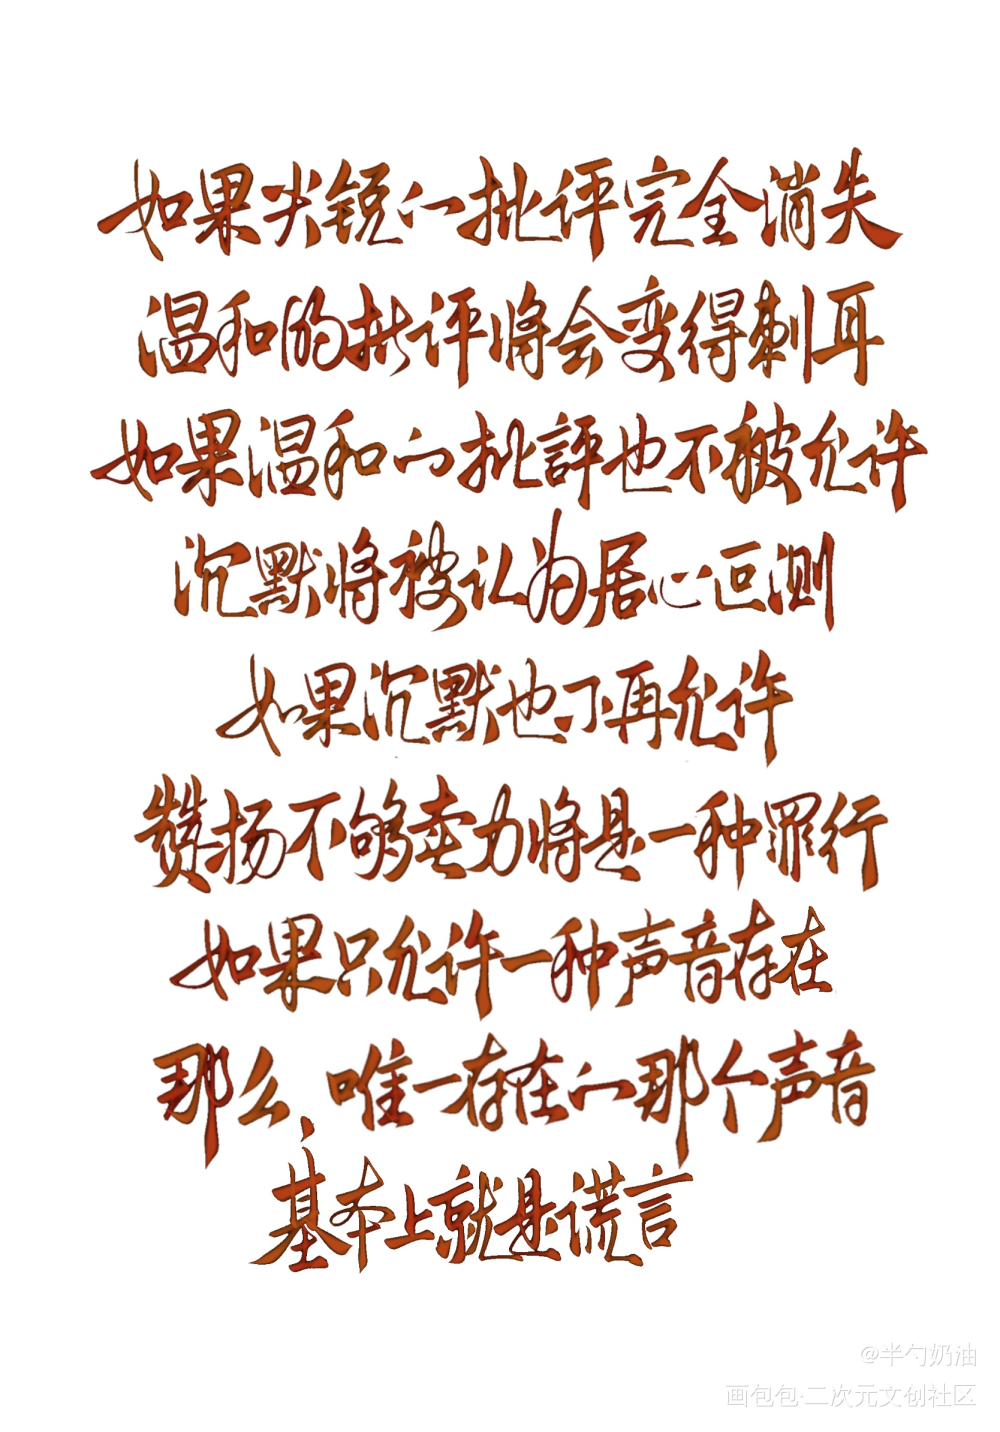 如果尖锐的批评完全消失
温和的批评将会变得刺耳
如果温和的批評也不被允许
沉默将被认为居心叵测
如果沉默也不再允许
赞扬不够卖力将是一种罪行
如果只允许一种声音存在
那么，唯一存在的那个声音
基本上就是谎言
@半勺奶油
画包包·二次元文创社区